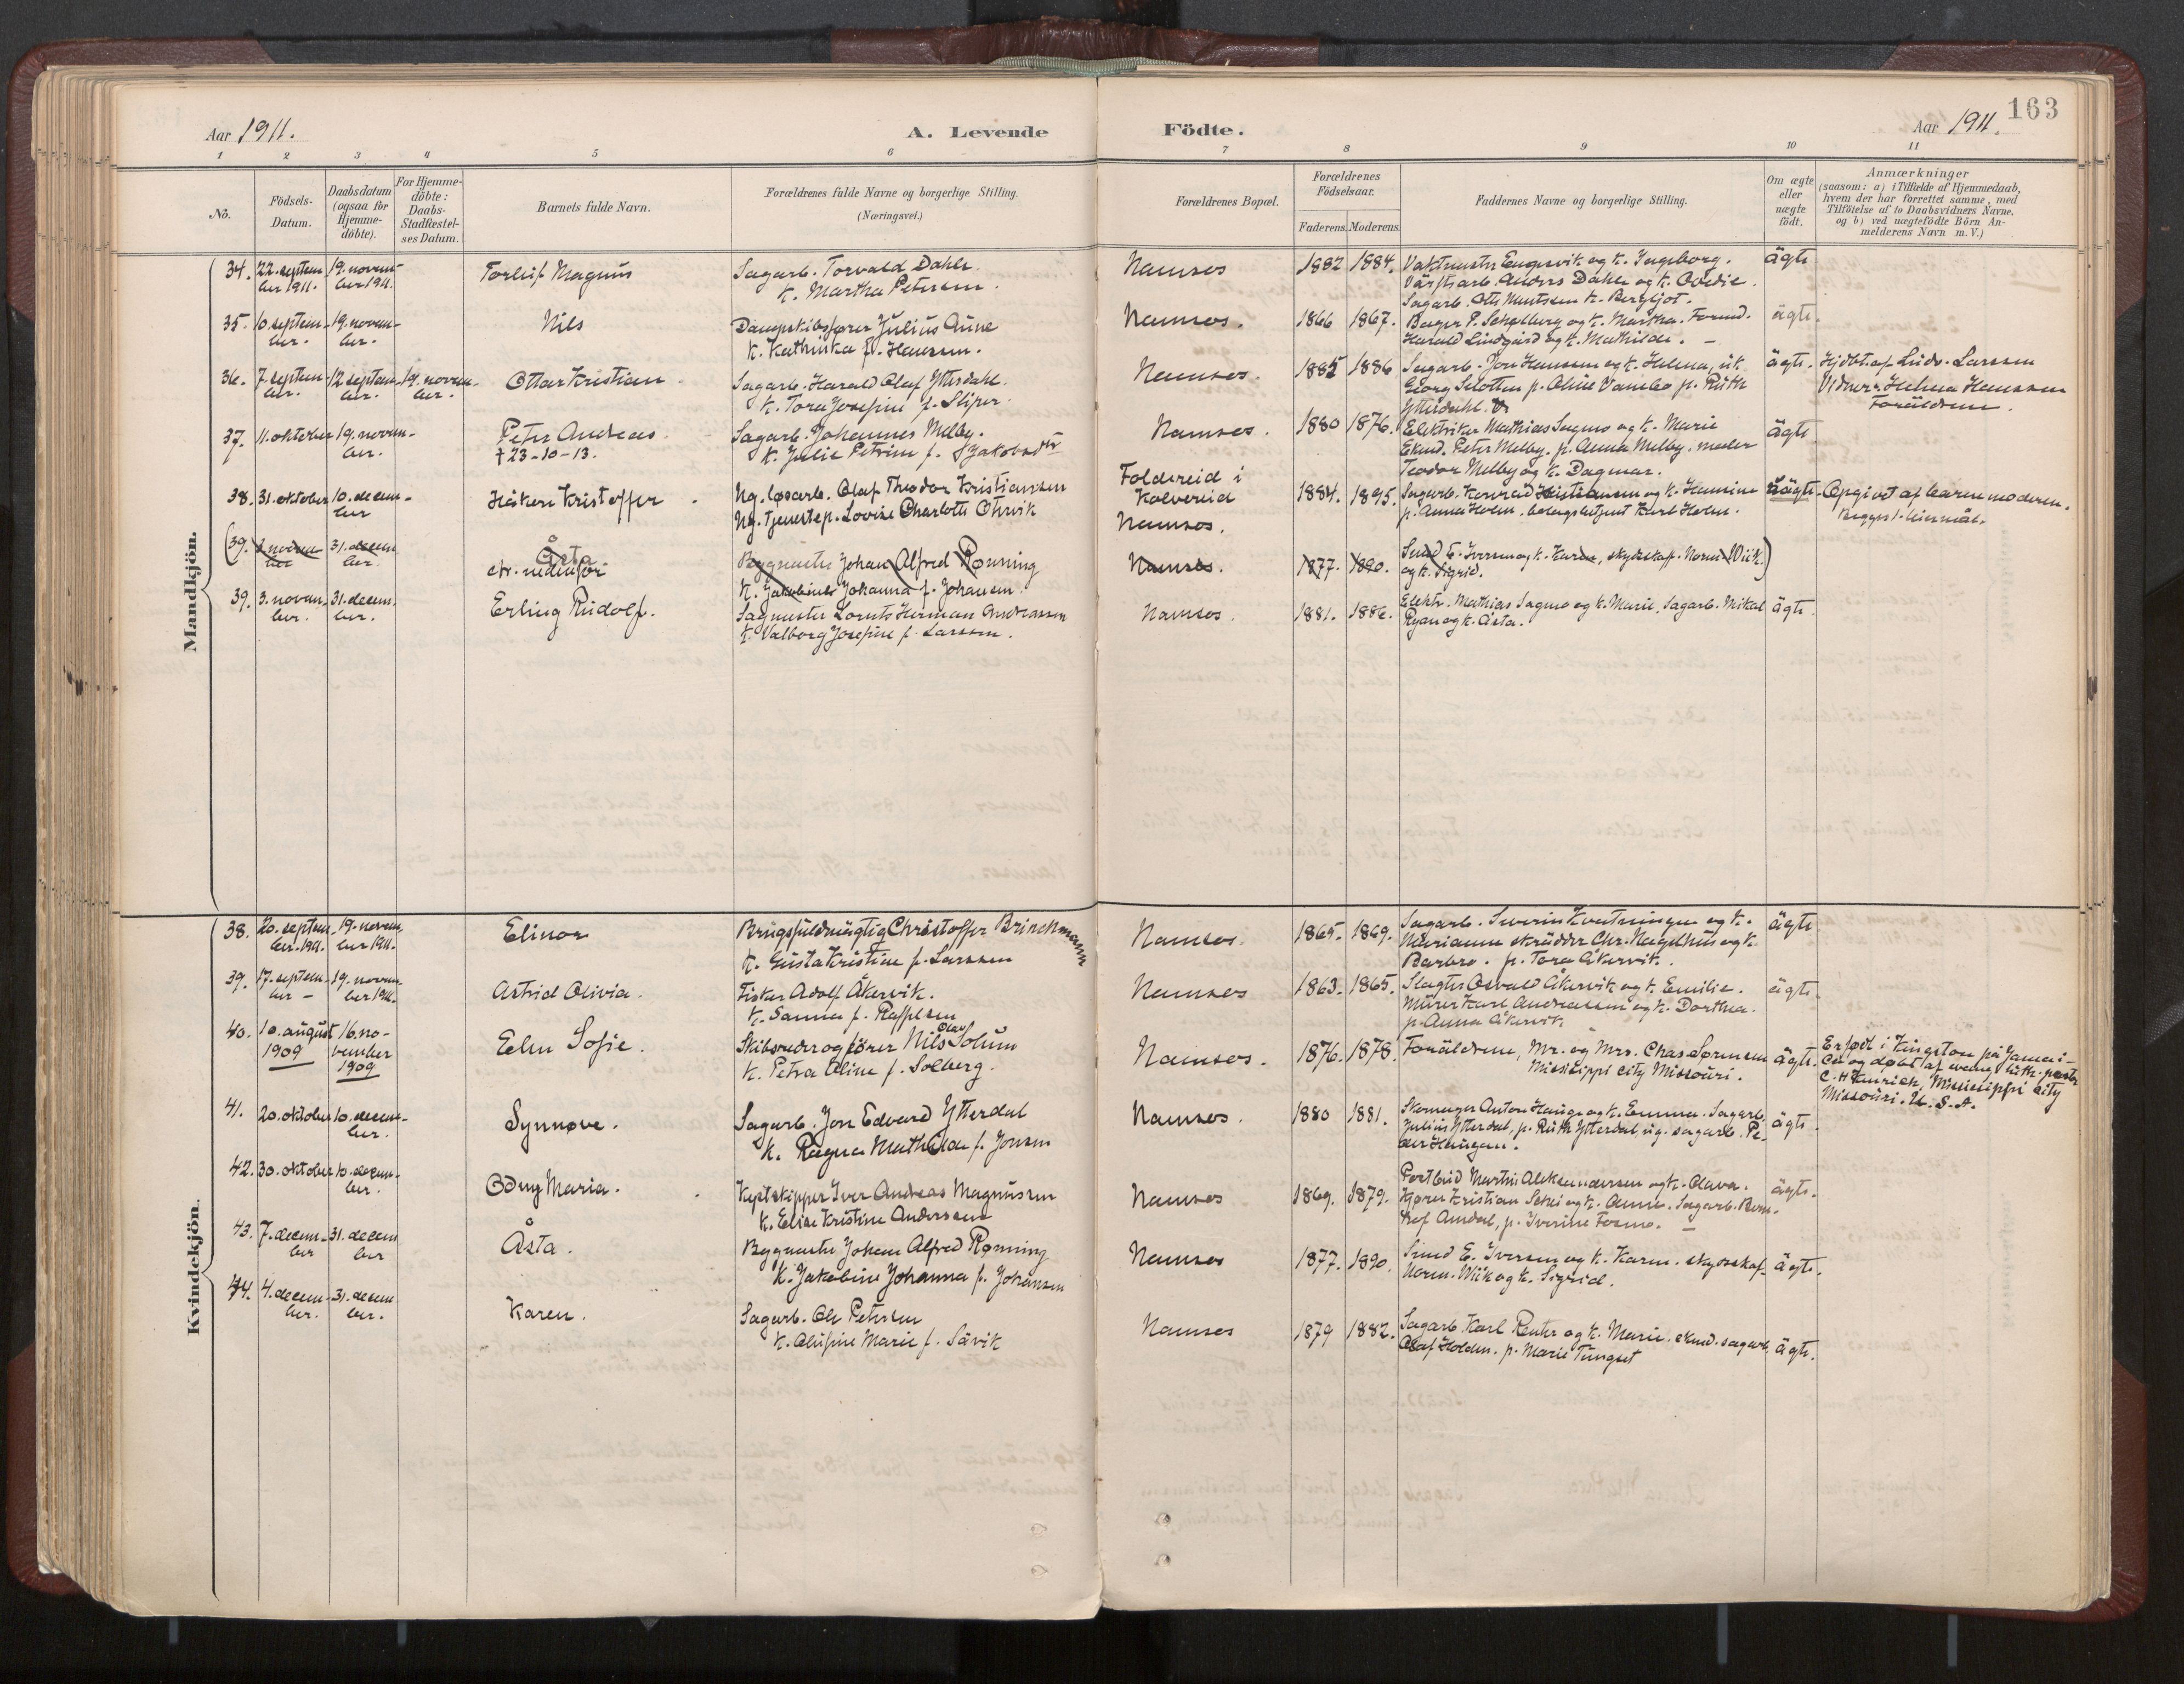 163
Aar 1911.
A. Levende
Födte.
Aar 1911.
1 2 3 4 5 6 7 8 9 10 11
No.
Födsels-
Datum.
Daabsdatum
(ogsaa for
Hjemme-
döbte).
For Hjemme-
döbte:
Daabs-
Stadfæstel-
ses Datum.
Barnets fulde Navn.
Forældrenes fulde Navne og borgerlige Stilling.
(Næringsvei.)
Forældrenes Bopæl.
Forældrenes
Födselsaar.
Faderens. Moderens.
Faddernes Navne og borgerlige Stilling.
Om ægte
eller
uægte
födt.
Anmærkninger
(saasom: a) i Tilfælde af Hjemmedaab,
hvem der har forrettet samme, med
Tilföielse af to Daabsvidners Navne,
og b) ved uægtefödte Börn An-
melderens Navn m. V.)
Mandkjön.
34.
22. septem-
ber 1911.
19. novem-
ber 1911.
Torleif Magnus
Sagarb. Torvald Dahle
k. Martha Petersen.
Namsos
1882 1884.
Vaktmester Engesvik og k. Ingeborg.
Værftsarb. Anders Dahle og k. Ovedie.
Sagarb. Otto Mentsen k. Bergljot.
ägte
35.
10. septem-
ber.
19. novem-
ber.
Nils
Dampskibsfører Julius Aune
k. Kathinka f. Hanssen.
Namsos.
1866 1867.
Bager P. Schølberg og k. Martha. Formd.
Harald Lindgård og k. Mathilde. —
ägte.
36.
7. septem-
ber.
12. septem-
ber.
19. novem-
ber.
Ottar Kristian
Sagarb. Harald Olaf Ytterdahl
k. Tora Josefine f. Sliper.
Namsos.
1885 1886
Sagarb. Jon Hanssen og k. Helena, uk.
Georg Slotten p. Oline Vannebo p. Ruth
Ytterdahl.
ägte.
Hjdbt. af Ludv. Larssen
Vidner: Helena Hanssen
Forældrene.
37.
11. oktober
19. novem-
ber.
Peter Andreas
† 23-10-13.
Sagarb. Johannes Melby.
k. Julie Petrine f. Jakobsdtr
Namsos.
1880 1876.
Elektriker Mathias Sagmo og k. Marie
Ekmd. Peter Melby. p. Anna Melby. maler
Teodor Melby og k. Dagmar.
ägte
38.
31. oktober
10. decem-
ber
Håken Kristoffer
Ug. løsarb. Olaf Theodor Kristiansen
Ug. tjenestep. Lovise Charlotte Otervik
Foldereid i
Kolvereid
Namsos.
1884. 1895.
Sagarb. Konrad Kristiansen og k. Hansine
p. Anna Holm. bolagsbetjent Karl Holm.
uägte.
Opgivet af barnemoderen.
Begges 1. leiermål.
(39.
31. decem
ber.
Åsta
str. nedenfor
Bygmester Johan Alfred Rønning
k. Jakobine Johanna f. Johansen
Namsos.
1877. 1890.
Smed E. Iversen og k. Karen, skydsskaf. Norm. Wiik
og k. Sigrid.
39.
3. novem.
ber.
31. decem.
ber.
Erling Rudolf.
Sagmester Lornts Herman Andreassen
k. Valborg Josefine f. Larssen.
Namsos.
1881. 1886.
Elektr. Mathias Sagmo og k. Marie, Sagarb. Mikal
Ryan og k. Åsta.
ägte.
Kvindekjön.
38.
20. septem.
ber. 1911.
19. novem.
ber 1911.
Elinor
Brugsfuldmægtig Christoffer Brinchmann
k. Gusta Kristine f. Larssen
Namsos.
1865. 1869.
Sagarb. Severin Kvetningen og k.
Marianne skrädder Chr. Nagelhus og k.
Barbro. p. Tora Åkervik.
ägte
39.
17. septem.
ber —
19. novem.
ber 1911.
Astrid Olivia.
Fisker Adolf Åkervik.
k. Sanna f. Rafflsen
Namsos
1863. 1865.
Slagter Osvald Åkervik og k. Emilie.
Murer Karl Andreassen og k. Dorthea.
p. Anna Åkervik
ägte.
40.
10. august
1909
16. no-
vember
1909
Ellen Sofie.
Skibsreder og fører Nils Olav Solum
k. Petra Oline f. Solberg.
Namsos.
1876. 1878.
Forældrene, Mr. og Mrs. Chas Sørensen
Missisippi city Missouri.
ägte.
Er født i Kingston på Jamai-
ca og døbt af evang. luth. pastor
C. H. Hinrich, Mississippi city
Missouri. U. S. A.
41.
20. oktober
10. decem-
ber.
Synnøve.
Sagarb. Jon Edvard Ytterdal
k. Ragna Mathilda f. Jonsen
Namsos.
1880 1881.
Skomager Anton Hauge og k. Emma. Sagarb.
Julius Ytterdal, p. Ruth Ytterdal, ug. sagarb. Pe-
der Haugan.
ägte.
42.
30. oktober
10. decem-
ber.
Odny Maria.
Kystskipper Iver Andreas Magnussen
k. Elise Kristine Andersen
Namsos
1869. 1879.
Postbud Martin Aleksandersen og k. Olava.
Kjører Kristian Selnes og k. Anne. Sagarb. Bern-
hof Amdal, p. Iverine Fosmo. —
ägte.
43.
7. decem-
ber
31. decem
ber
Åsta.
Bygmester Johan Alfred Rønning
k. Jakobine Johanna f. Johansen
Namsos
1877. 1890.
Smed E. Iversen og k. Karen. skydsskaf-
Norm. Wiik og k. Sigrid.
ägte.
44.
4. decem-
ber.
31. decem
ber.
Karen.
Sagarb. Ole Petersen
k. Olufine Marie f. Sävik
Namsos
1879 1882.
Sagarb. Karl Reuter og k. Marie. ekmd. sagarb.
Olaf Holden. p. Marie Tungset
ägte.